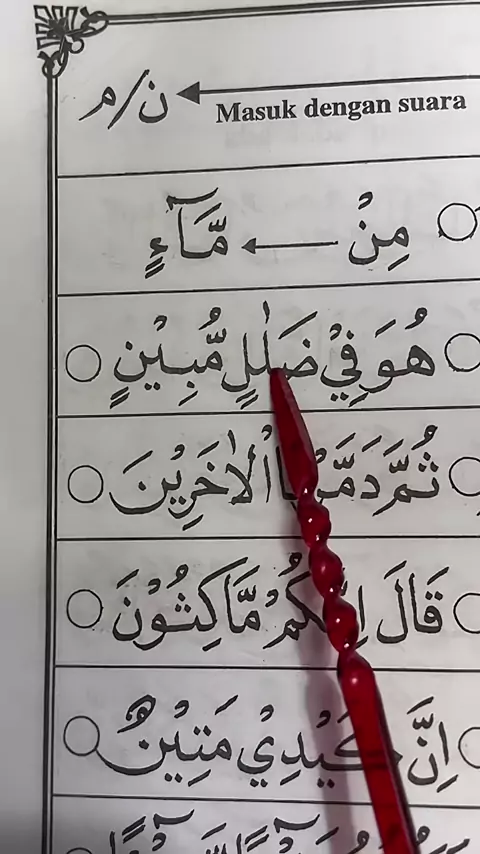 ن/م
Masuk dengan suara
مِنْ مَّآءٍ
هُوَ فِيْ ضَلٰلٍ مُّبِيْنٍ
ثُمَّ دَمَّرْنَا الْاٰخَرِيْنَ
قَالَ اِنَّكُمْ مَّاكِثُوْنَ
اِنَّ كَيْدِيْ مَتِيْنٌ